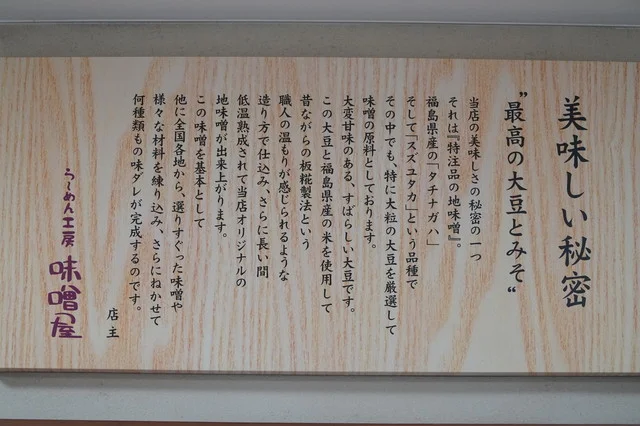 美味しい秘密
"最高の大豆とみそ"
当店の美味しさの秘密の一つ
それは『特注品の地味噌』。
福島県産の「タチナガハ」
そして「スズユタカ」という品種で
その中でも、特に大粒の大豆を厳選して
味噌の原料としております。
大変甘味のある、すばらしい大豆です。
この大豆と福島県産の米を使用して
昔ながらの板糀製法という
職人の温もりが感じられるような
造り方で仕込み、さらに長い間
低温熟成されて当店オリジナルの
地味噌が出来上がります。
この味噌を基本として
他に全国各地から、選りすぐった味噌や
様々な材料を練り込み、さらにねかせて
何種類もの味ダレが完成するのです。
店主
らーめん工房 味噌屋